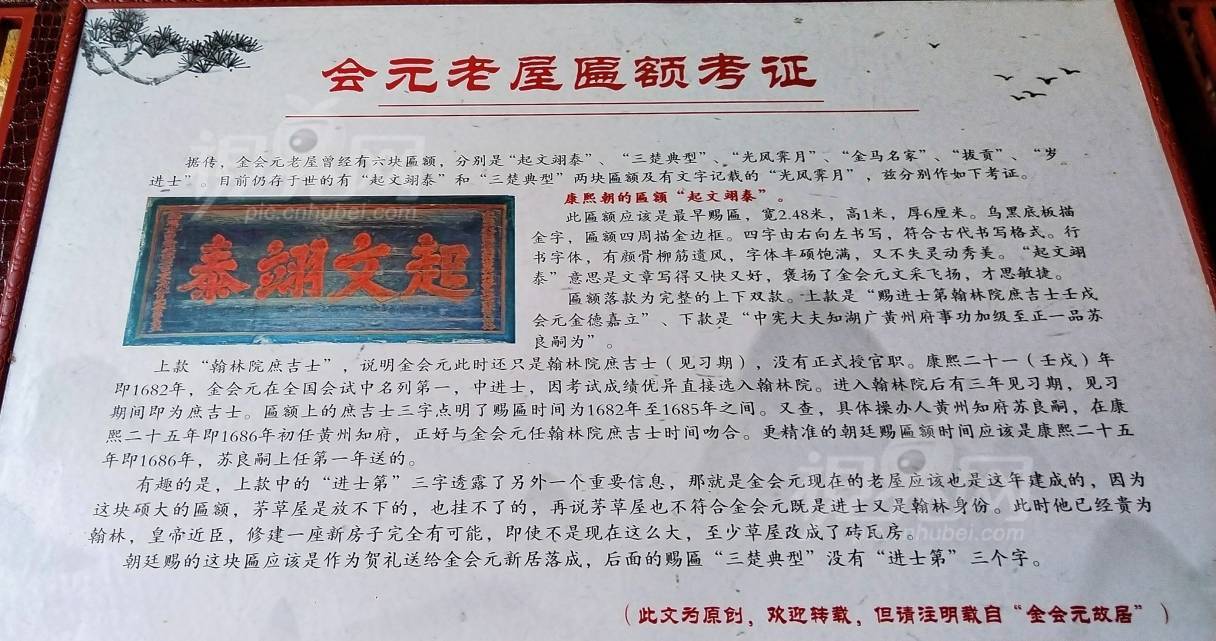 会元老屋匾额考证
据传，金会元老屋曾经有六块匾额，分别是“起文翊泰”、“三楚典型”、“光风霁月”、“金马名家”、“拔贡”、“岁
进士”。目前仍存于世的有“起文翊泰”和“三楚典型”两块匾额及有文字记载的“光风霁月”，兹分别作如下考证。
康熙朝的匾额“起文翊泰”。
此匾额应该是最早赐匾，宽2.48米，高1米，厚6厘米。乌黑底板描
金字，匾额四周描金边框。四字由右向左书写，符合古代书写格式。行
书字体，有颜骨柳筋遗风，字体丰硕饱满，又不失灵动秀美。“起文翊
泰”意思是文章写得又快又好，褒扬了金会元文采飞扬，才思敏捷。
匾额落款为完整的上下双款。上款是“赐进士第翰林院庶吉士壬戌
会元金德嘉立”、下款是“中宪大夫知湖广黄州府事功加级至正一品苏
良嗣为”。
泰翊文起
上款“翰林院庶吉士”，说明金会元此时还只是翰林院庶吉士（见习期），没有正式授官职。康熙二十一（壬戌）年
即1682年，金会元在全国会试中名列第一，中进士，因考试成绩优异直接选入翰林院。进入翰林院后有三年见习期，见习
期间即为庶吉士。匾额上的庶吉士三字点明了赐匾时间为1682年至1685年之间。又查，具体操办人黄州知府苏良嗣，在康
熙二十五年即1686年初任黄州知府，正好与金会元任翰林院庶吉士时间吻合。更精准的朝廷赐匾额时间应该是康熙二十五
年即1686年，苏良嗣上任第一年送的。
有趣的是，上款中的“进士第”三字透露了另外一个重要信息，那就是金会元现在的老屋应该也是这年建成的，因为
这块硕大的匾额，茅草屋是放不下的，也挂不了的，再说茅草屋也不符合金会元既是进士又是翰林身份。此时他已经贵为
翰林，皇帝近臣，修建一座新房子完全有可能，即使不是现在这么大，至少草屋改成了砖瓦房。
朝廷赐的这块匾应该是作为贺礼送给金会元新居落成，后面的赐匾“三楚典型”没有“进士第”三个字。
（此文为原创，欢迎转载，但请注明载自“金会元故居”）
pic.cnhubei.com